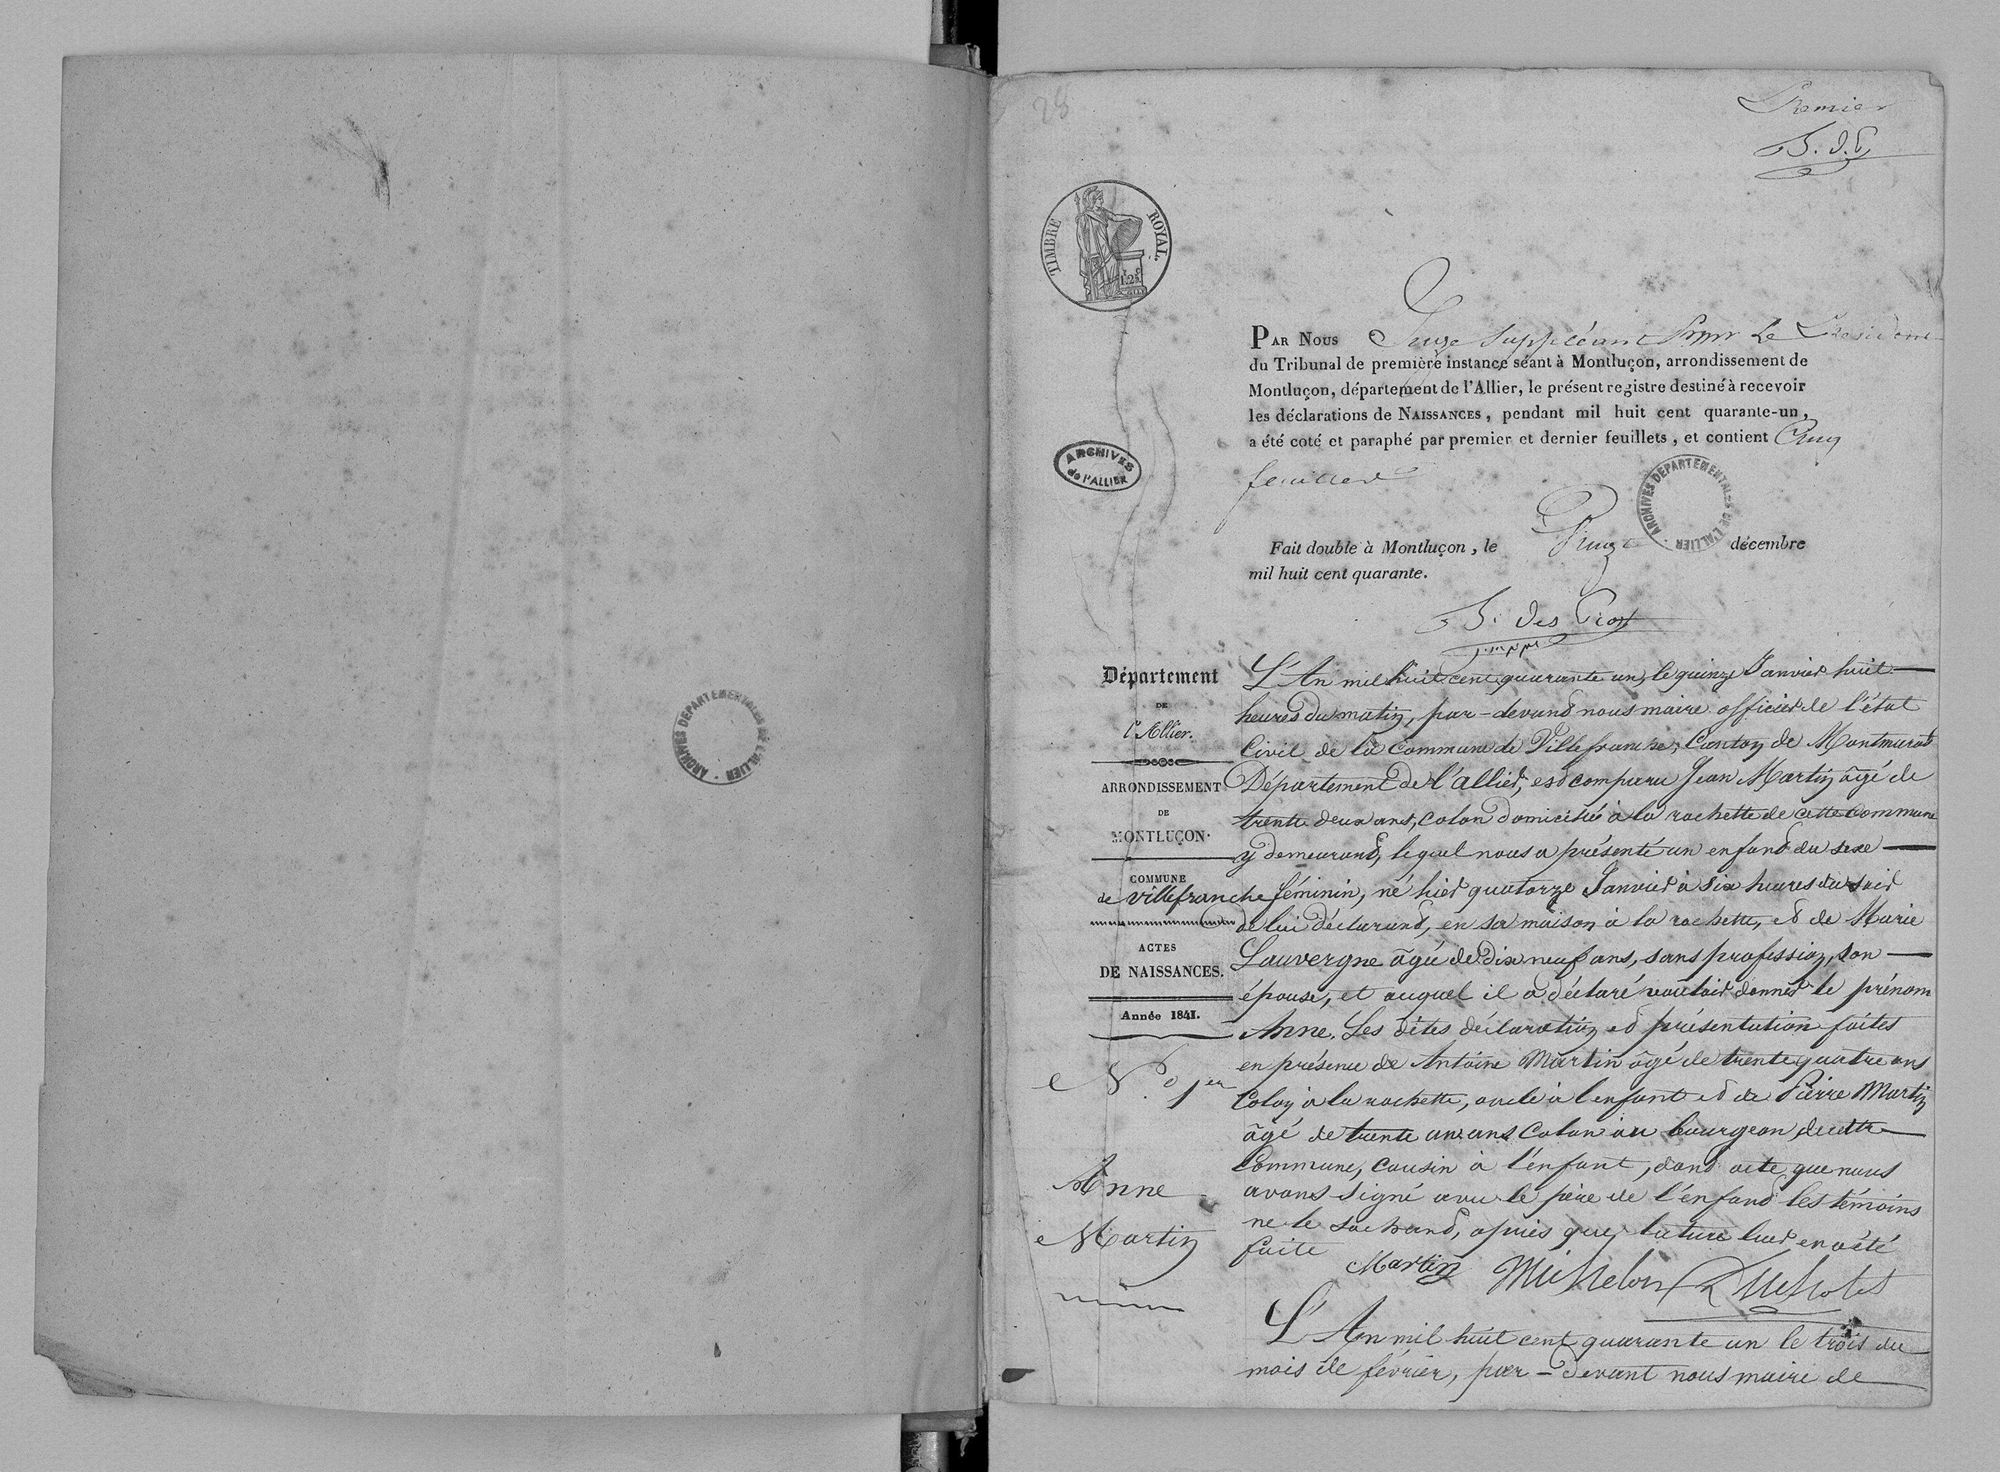 28
Premier
TIMBRE ROYAL.
PAR NOUS Juge Suppléant pour Le Président
du Tribunal de première instance séant à Montluçon, arrondissement de
Montluçon, département de l'Allier, le présent registre destiné à recevoir
les déclarations de NAISSANCES, pendant mil huit cent quarante-un,
a été coté et paraphé par premier et dernier feuillets, et contient Cinq
feuillets
ARCHIVES de l'ALLIER
ARCHIVES DÉPARTEMENTALES DE L'ALLIER
Fait double à Montluçon, le décembre
mil huit cent quarante.
Département
DE
l'Allier.
ARRONDISSEMENT
DE
MONTLUÇON.
COMMUNE
de villefranche
ACTES
DE NAISSANCES.
Année 1841.
N.o 1er
Anne
Martin
L'An mil huit cent quarante un, le quinze Janvier huit
heures du matin, par-devant nous maire officier de l'état
Civil de la Commune de Villefranche, Canton de Montmarault
Département de l'allier, est comparu Jean Martin âgé de
trente deux ans, colon domicilié à la rochette de cette commune
y demeurant, lequel nous a présenté un enfant du sexe
féminin, né hier quatorze Janvier à six heures du soir
de lui déclarant, en sa maison à la rochette, et de Marie
Lauvergne âgée de dix neuf ans, sans profession, son
épouse, et auquel il a déclaré vouloir donner le prénom
Anne, Les dites déclaration et présentation faites
en présence de Antoine Martin âgé de trente quatre ans
Colon à la rochette, oncle à l'enfant et de Pierre Martin
âgé de trente un ans Colon au bourgeon de cette
Commune, Cousin à l'enfant, dont acte que nous
avons signé avec le père de l'enfant les témoins
ne le sachant, après que lecture leur en a été
faite Martin Michelon
L'An mil huit cent quarante un le trois du
mois de février, par-devant nous maire de
ARCHIVES DÉPARTEMENTALES DE L'ALLIER